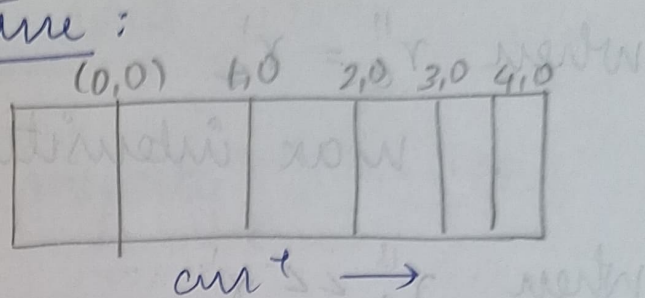 ure :
(0,0) 1,0 2,0 3,0 4,0
cm⁻¹ →